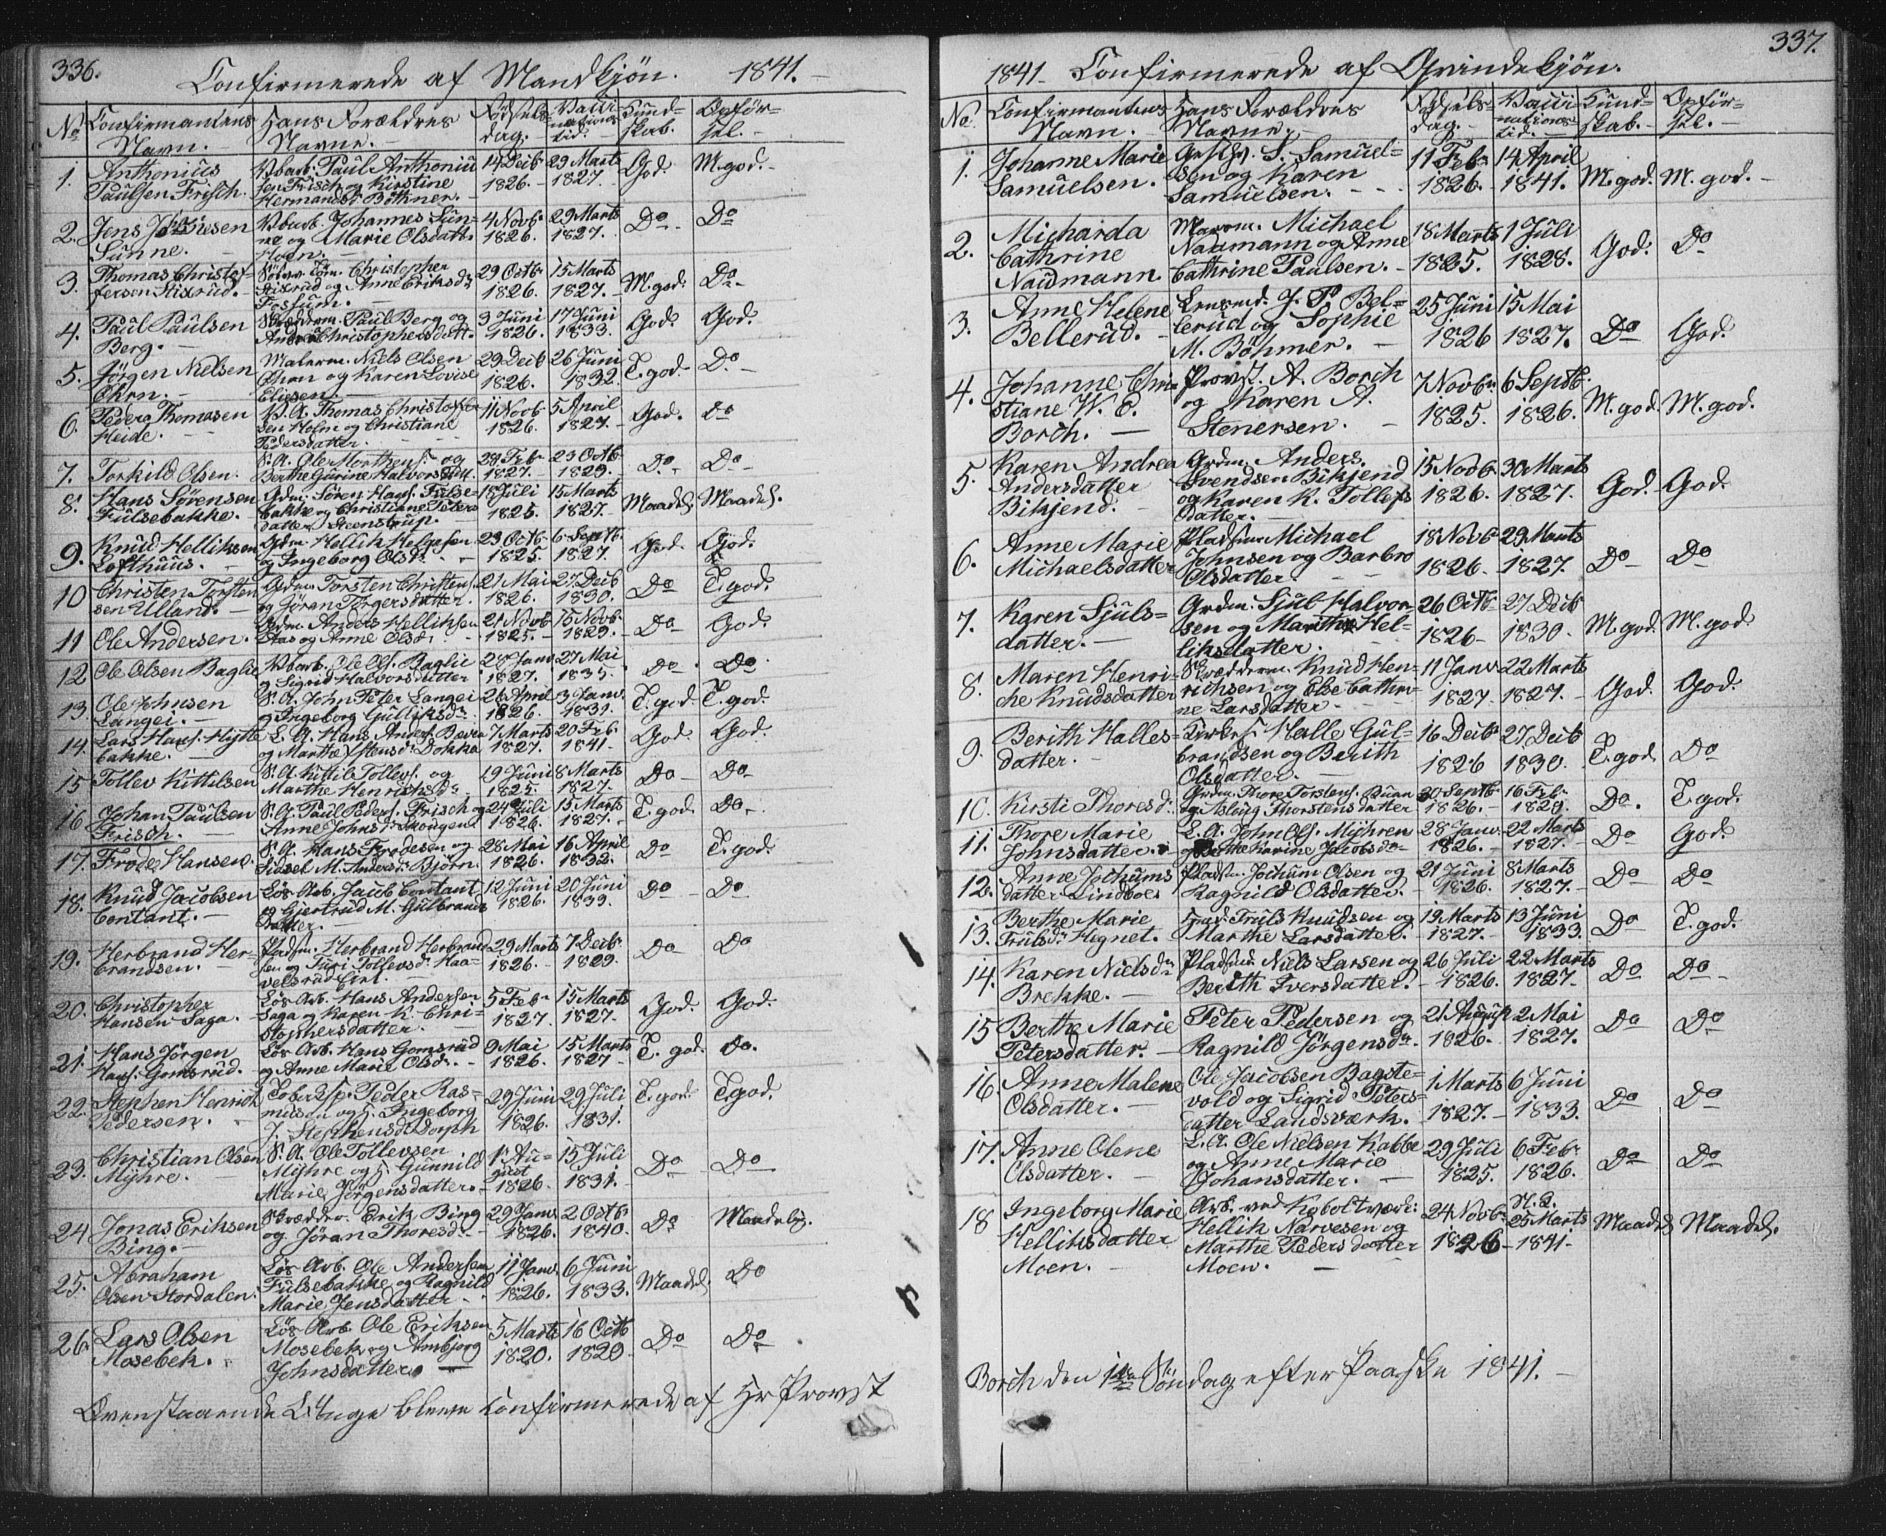 336.
Confirmerede af Mandkjøn. 1841.
No Confirmantens Navn. Hans Forældres Navne. Fødselsdag. Vaccinationstid. Kundskab. Opførsel.
1. Anthonius 14 Decb 29 Marts God. M.god.
Paulsen Frisch. 1826. 1827.
2. Jens 4 Novb. 29 Marts Do Do
Sunne. og Marie Olsdatt. 1826. 1827.
3. Thomas Christof- Christopher 29 Octb. 15 Marts M.god. Do
fersen Stixrud. Stixrud og Anne Eriksdr 1826. 1827.
Fossum.
4. Paul Paulsen Paul Berg og 3 Juni 17 Juni God. God.
Berg. Christophersdatt. 1826. 1833.
5. Jørgen Nielsen Malerm. Niels Olsen 29 Decb 26 Juni T. god Do
og Karen Lovise 1826. 1832.
Eliesen.
6. Peder Thomasen Thomas Christoffer 11 Novb. 5 April God. Do
Heide. sen Holm og Christiane 1826. 1827.
Pedersdatter.
7. Torkild Olsen. S. A. Ole Morthens. og 23 Octb. Do Do
Berthe Gurine Halvorsdatt. 1827. 1829.
8. Hans Sørensen Grdm. Søren Hans. Fulse- Juli 15 Marts Maadel. Maadel.
Fulsebakke. bakke og Christiane Peters 1825. 1827
datter Steenstrup.
9. Knud Helliksen Grdm. Hellik Helgesen 23 Octb. 6 Septb. God. God.
Lofthuus. og Ingeborg Olsdr. 1825. 1827.
10 Christen Torsten Grdm. Torsten Christens. 21 Mai 27 Decb Do T. god.
sen Ulland. og Jøran Torgersdatter. 1826. 1830.
11 Ole Andersen. Grdm. Anders Helliksen 21 Novb. 15 Novb. Do God.
Aas og Anne Olsdr. 1825. 1829.
12 Ole Olsen Baglie Ole Ols. Baglie 28 Janv 27 Mai Do Do.
og Sigrid Halvorsdatter 1827. 1835.
13. Ole Johnsen S. A. John Peter Langei 26 April 3 Janv. T. god. T. god.
Langei. og Ingeborg Gulliksdr. 1826. 1831.
14. Lars Hans. Hytte Hans Anders. 7 Marts 20 Feb. God. God.
bakke. og Marthe Dokka 1827. 1841.
15 Tollev Kittilsen S. A. Kittil Tollevs. og 19 Juni 8 Marts Do Do
Marthe Henriksdr. 1825. 1827.
16. Johan Paulsen S. A. Paul Peders. Frisch og 24 Juli 15 Marts T. god. Do
Frisch. Anne Johnsdr. Skougen 1826. 1827.
17. Frode Hansen. S. A. Hans Frodesen og 28 Mai 16 April Do T. god.
Sidsel M. Andersdr. Bjørn. 1826.
18. Knud Jacobsen Løs Arb. Jacob Contant 12 Juni 20 Juni Do Do
Contant. og Gjertrud M. Gulbrands 1826. 1839.
datter.
19. Herbrand Her- Pladsm. Herbrand Herbrand 29 Marts 7 Decb. Do Do
brandsen. sen og Turi Tollevsdr. Haa- 1826. 1829.
velsrud Eiet.
20. Christopher Løs Arb. Hans Andersen 5 Feb. 15 Marts God. God.
Hansen Saga. Saga og Karen K. Chri- 1827. 1827.
stophersdatter.
21. Hans Jørgen Løs Arb. Hans Gomsrud 9 Mai 15 Marts T. god. Do.
Hans. Gomsrud. og Anne Marie Olsdr. 1826. 1827
22. Stephen Henrich Peder Ras- 29 Juni 29 Juli T. god. T. god.
Pedersen. mussen og H. Ingeborg 1826. 1831.
J. Stephensdr. Dorph
23. Christian Olsen S. A. Ole Tollevsen 1 Au- 15 Juli Do Do
Myhre. Myhre og H. Gunnild gust 1831.
Marie Jørgensdatter. 1826.
24 Jonas Eriksen Erik Bing 29 Janv. 2 Octb. Do Maadelig.
Bing. og Jøran Thoresdr. 1826. 1840.
25. Abraham Løs Arb. Ole Andersen 11 Janv. 6 Juni Maadel. Do
Olsen Stordalen. Fulsebakke og Ragnild 1826. 1833.
Marie Jensdatter.
26. Lars Olsen Løs Arb. Ole Eriksen 5 Marts 16 Octb Do Do
Mosebek. Mosebek og Ambjørg 1820. 1829.
Johnsdatter.
Ovenstaaende Unge bleve confirmerede af Hr Provst
337.
1841. Confirmerede af Qvindekjøn.
No Confirmantens Navn. Hans Forældres Navne. Fødselsdag. Vaccinationstid. Kundskab. Opførsel.
1. Johanne Marie S. Samuel- 11 Feb. 14 April
Samuelsen. sen og Karen 1826. 1841. M.god. M. god.
Samuelsen.
2. Micharda Michael 18 Marts 1 Juli
Cathrine Naumann og Anne 1825. 1828. God. Do
Naumann. Cathrine Paulsen.
3. Anne Helene J. P. Bel- 25 Juni 15 Mai
Bellerud. lerud og Sophie 1826 1827. Do God.
M. Bøhmer.
4. Johanne Chri- Provst A. Borch 7 Novbr 6 Septb.
stiane W. C. og Karen A. 1825. 1826. M.god. M.god.
Borch. Stenersen.
5. Karen Andrea Grdm. Anders 15 Novb. 30 Marts
Andersdatter Svendsen Bikjend 1826. 1827. God. God.
Bikjend. og Karen K. Tollefs
datter.
6. Anne Marie Pladsm. Michael 18 Novb. 29 Marts
Michaelsdatter Johnsen og Barbro 1826. 1827. Do Do
Olsdatter.
7. Karen Sjuls- Grdm. Sjul Halvor- 26 Octb. 27 Decb
datter. sen og Marthe Hel- 1826. 1830. M.god. M.god
liksdatter.
8. Maren Henri- Knud Hen- 11 Janv. 22 Marts
che Knudsdatter richsen og Else Cathri- 1827 1827. God. God.
ne Larsdatter.
9. Berith Halles- Halle Gul- 16 Decb. 27 Decb
datter. brandsen og Berith 1826 1830. T. god Do
Olsdatter.
10. Kirsti Thoresdr. Grdm. Thore Torstens. Buan 30 Septb. 16 Feb. Do. T. god.
og Asborg Thorstensdatter 1826. 1829.
11. Thore Marie John Ols. Myhren 28 Janv. 22 Marts Do God
Johnsdatter. Karine Jacobsdr. 1826. 1827.
12. Anne Jochums Pladsm. Jochum Olsen og 21 Juni 8 Marts Do Do
datter Lindboe. Ragnild Olsdatter. 1826. 1827.
13. Berthe Marie Truls Knudsen og 19 Marts 13 Juni Do T. god.
Trulsdr. Hegnet. Marthe Larsdatter. 1827. 1833.
14. Karen Nielsdr. Pladsm. Niels Larsen og 26 Juli 22 Marts Do Do
Brekke. Berith Iversdatter. 1826. 1827.
15 Berthe Marie Peter Pedersen og 21 August 2 Mai Do Do
Petersdatter. Ragnild Jørgensdr. 1826. 1827.
16. Anne Malene Ole Jacobsen Bagste- 1 Marts 6 Juni
Olsdatter. vold og Sigrid Peters- 1827. 1833. Do Do
datter Landsværk.
17. Anne Olene Ole Nielsen Kabbe 29 Juli 6 Feb. Do Do
Olsdatter. og Anne Marie 1825. 1826.
Johansdatter.
18 Ingeborg Marie Arb. ved Koboltværk: 24 Novb. 25 Marts Maadel. Maadel.
Helliksdatter Hellik Narvesen og 1826 1841.
Moen. Marthe Pedersdatter
Moen.
Borch den 1ste Søndag efter Paaske 1841.